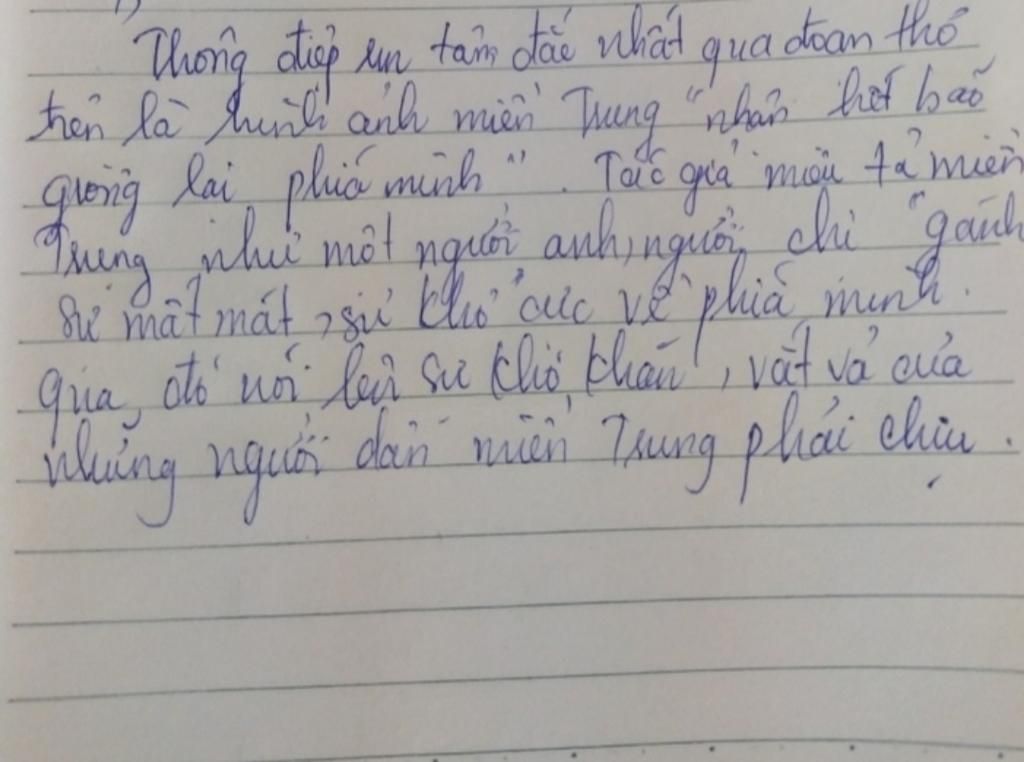 Thông điệp em tâm đắc nhất qua đoạn thơ
trên là hình ảnh miền Trung "nhận hết bão
giông lại phía mình". Tác giả miêu tả miền
Trung như một người anh, người chị "gánh
sự mất mát, sự khổ cực về phía mình.
qua đó nói lên sự khó khăn, vất vả của
những người dân miền Trung phải chịu.